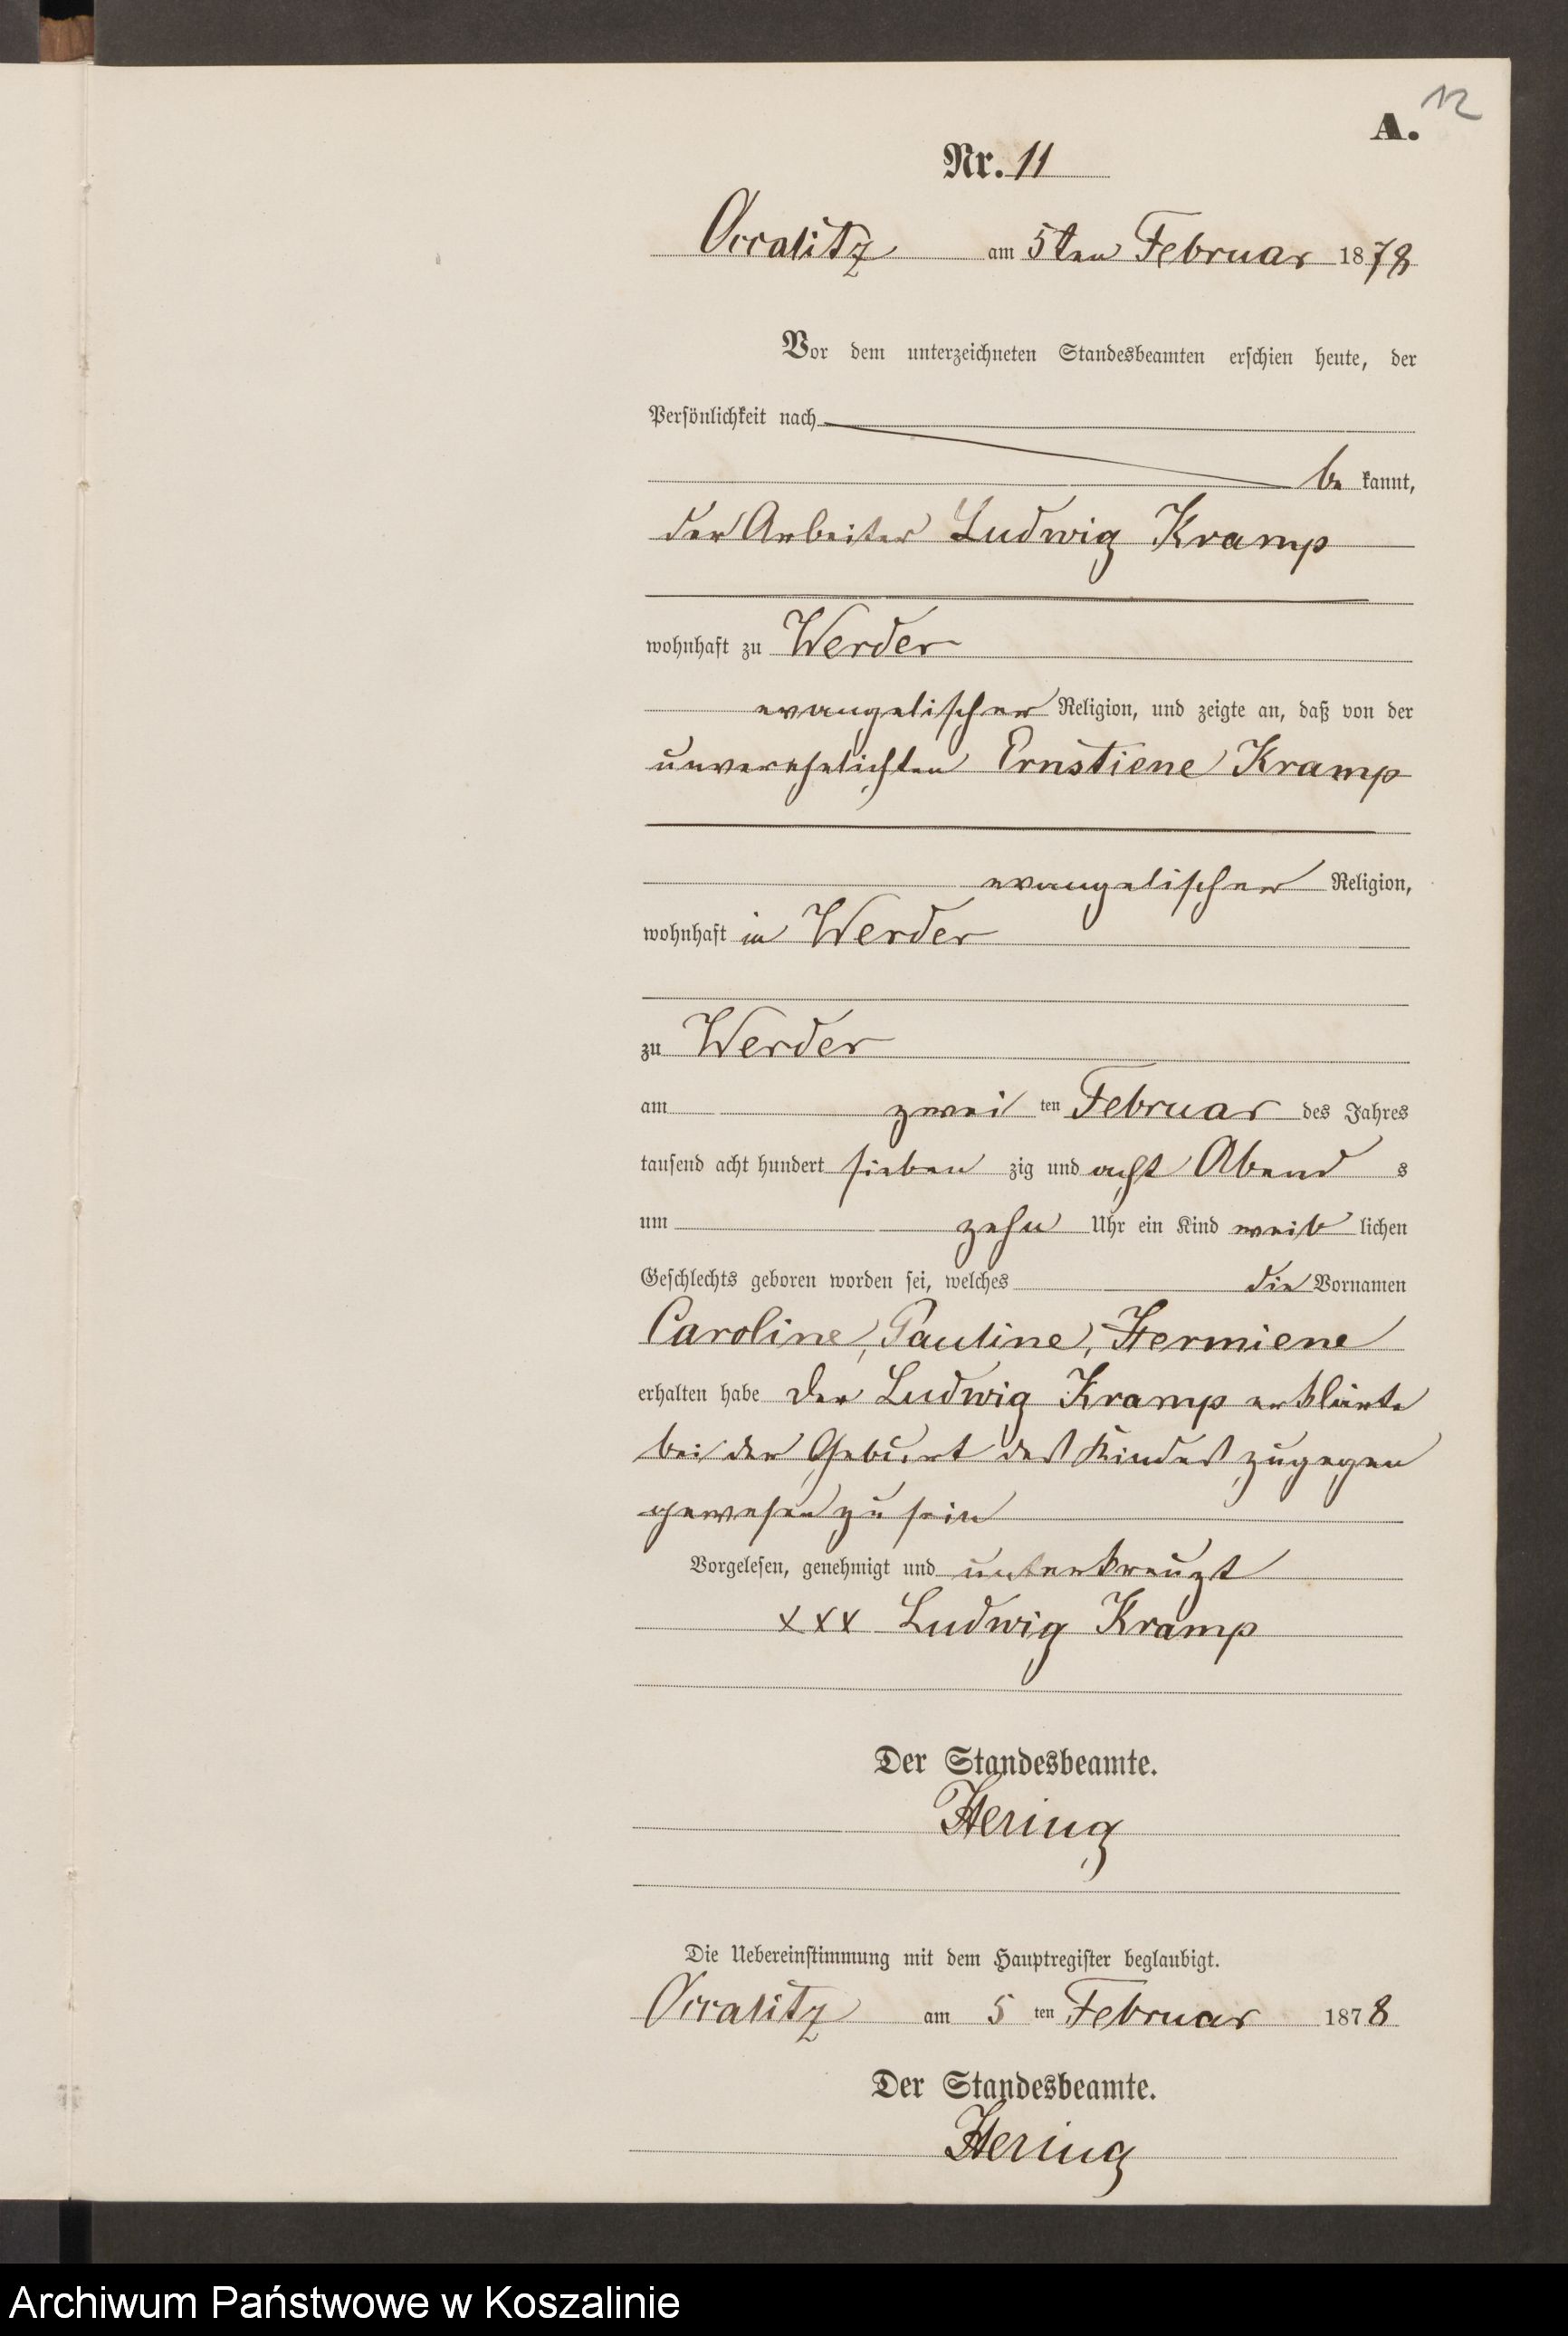 12
A.
Nr. 11
Occalitz am 5ten Februar 1878
Vor dem unterzeichneten Standesbeamten erschien heute, der
Persönlichkeit nach
be kannt,
der Arbeiter Ludwig Kramp
wohnhaft zu Werder
evangelischer Religion, und zeigte an, daß von der
unverehelichten Ernstiene Kramp
evangelischer Religion,
wohnhaft in Werder
zu Werder
am zwei ten Februar des Jahres
tausend acht hundert sieben zig und acht Abend s
um zehn Uhr ein Kind weib lichen
Geschlechts geboren worden sei, welches die Vornamen
Caroline, Pauline, Hermiene
erhalten habe Der Ludwig Kramp erklärte
bei der Geburt des Kindes zugegen
gewesen zu sein
Vorgelesen, genehmigt und unterkreuzt
XXX Ludwig Kramp
Der Standesbeamte.
Hering
Die Uebereinstimmung mit dem Hauptregister beglaubigt.
Occalitz am 5 ten Februar 1878
Der Standesbeamte.
Hering
Archiwum Państwowe w Koszalinie